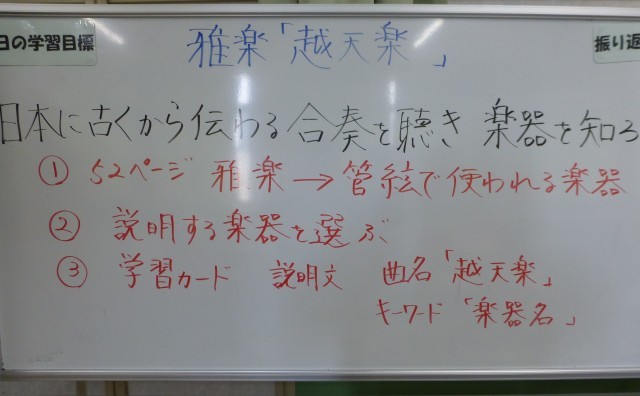 日の学習目標
雅楽「越天楽」
振り返
日本に古くから伝わる合奏を聴き 楽器を知ろ
① 52ページ 雅楽→管絃で使われる楽器
② 説明する楽器を選ぶ
③ 学習カード 説明文 曲名「越天楽」
キーワード「楽器名」